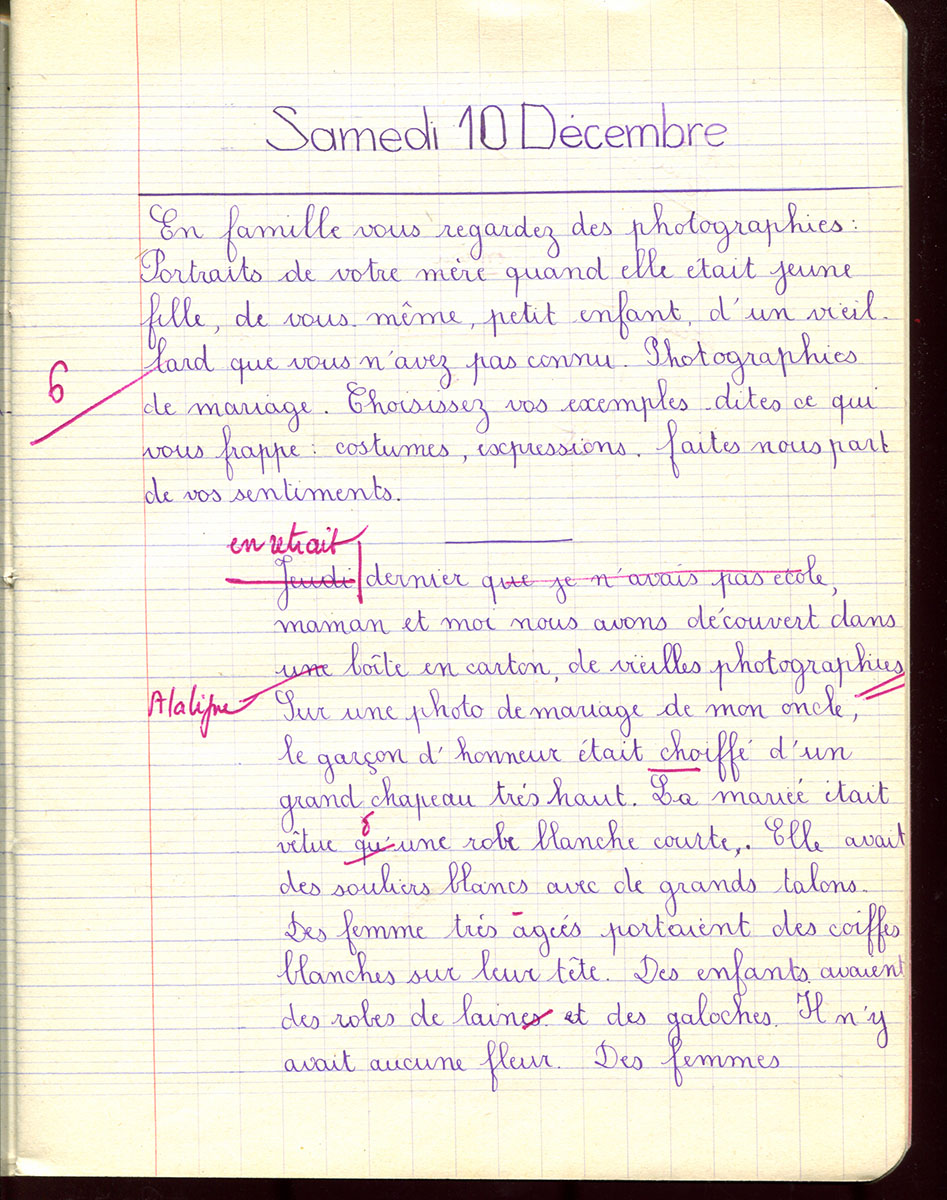 Samedi 10 Décembre
En famille vous regardez des photographies :
Portraits de votre mère quand elle était jeune
fille, de vous. même, petit enfant, d'un vieil.
lard que vous n'avez pas connu. Photographies
6
de mariage. Choisissez vos exemples. dites ce qui
vous frappe : costumes, expressions. faites nous part
de vos sentiments.
en retrait
Jeudi dernier que je n'avais pas école,
maman et moi nous avons découvert dans
une boîte en carton, de vieilles photographies
A la ligne
Sur une photo de mariage de mon oncle,
le garçon d'honneur était choiffé d'un
grand chapeau trés haut. La mariée était
vêtue qu'une robe blanche courte,. Elle avait
des souliers blancs avec de grands talons.
Des femme trés âgées portaient des coiffes
blanches sur leur tête. Des enfants avaient
des robes de laines et des galoches. Il n'y
avait aucune fleur. Des femmes